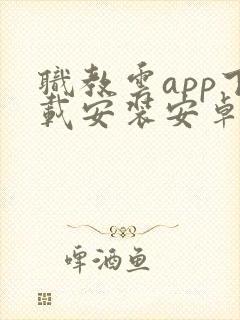 職教雲app下
載安裝安卓
啤酒鱼